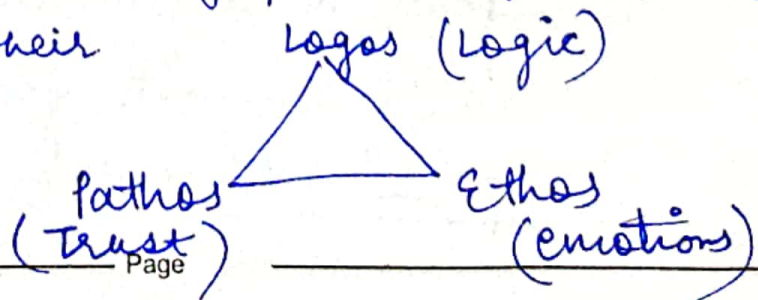 heir Logos (Logic)
Pathos Ethos
(Trust) (emotions)
Page